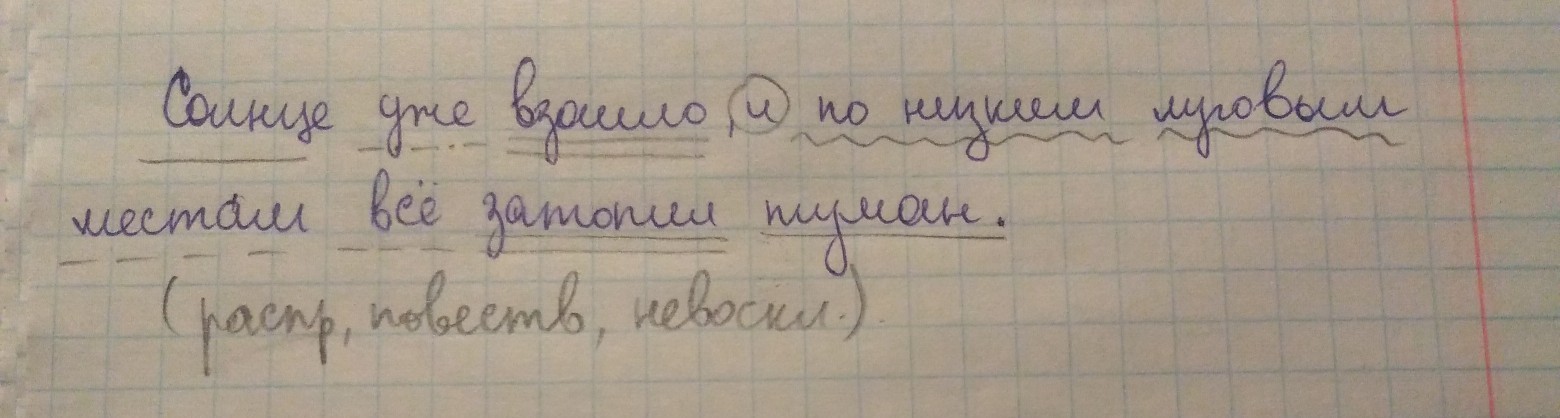 Солнце уже взошло, и по низким луговым
местам всё затопил туман.
(распр, повеств, невоскл.)